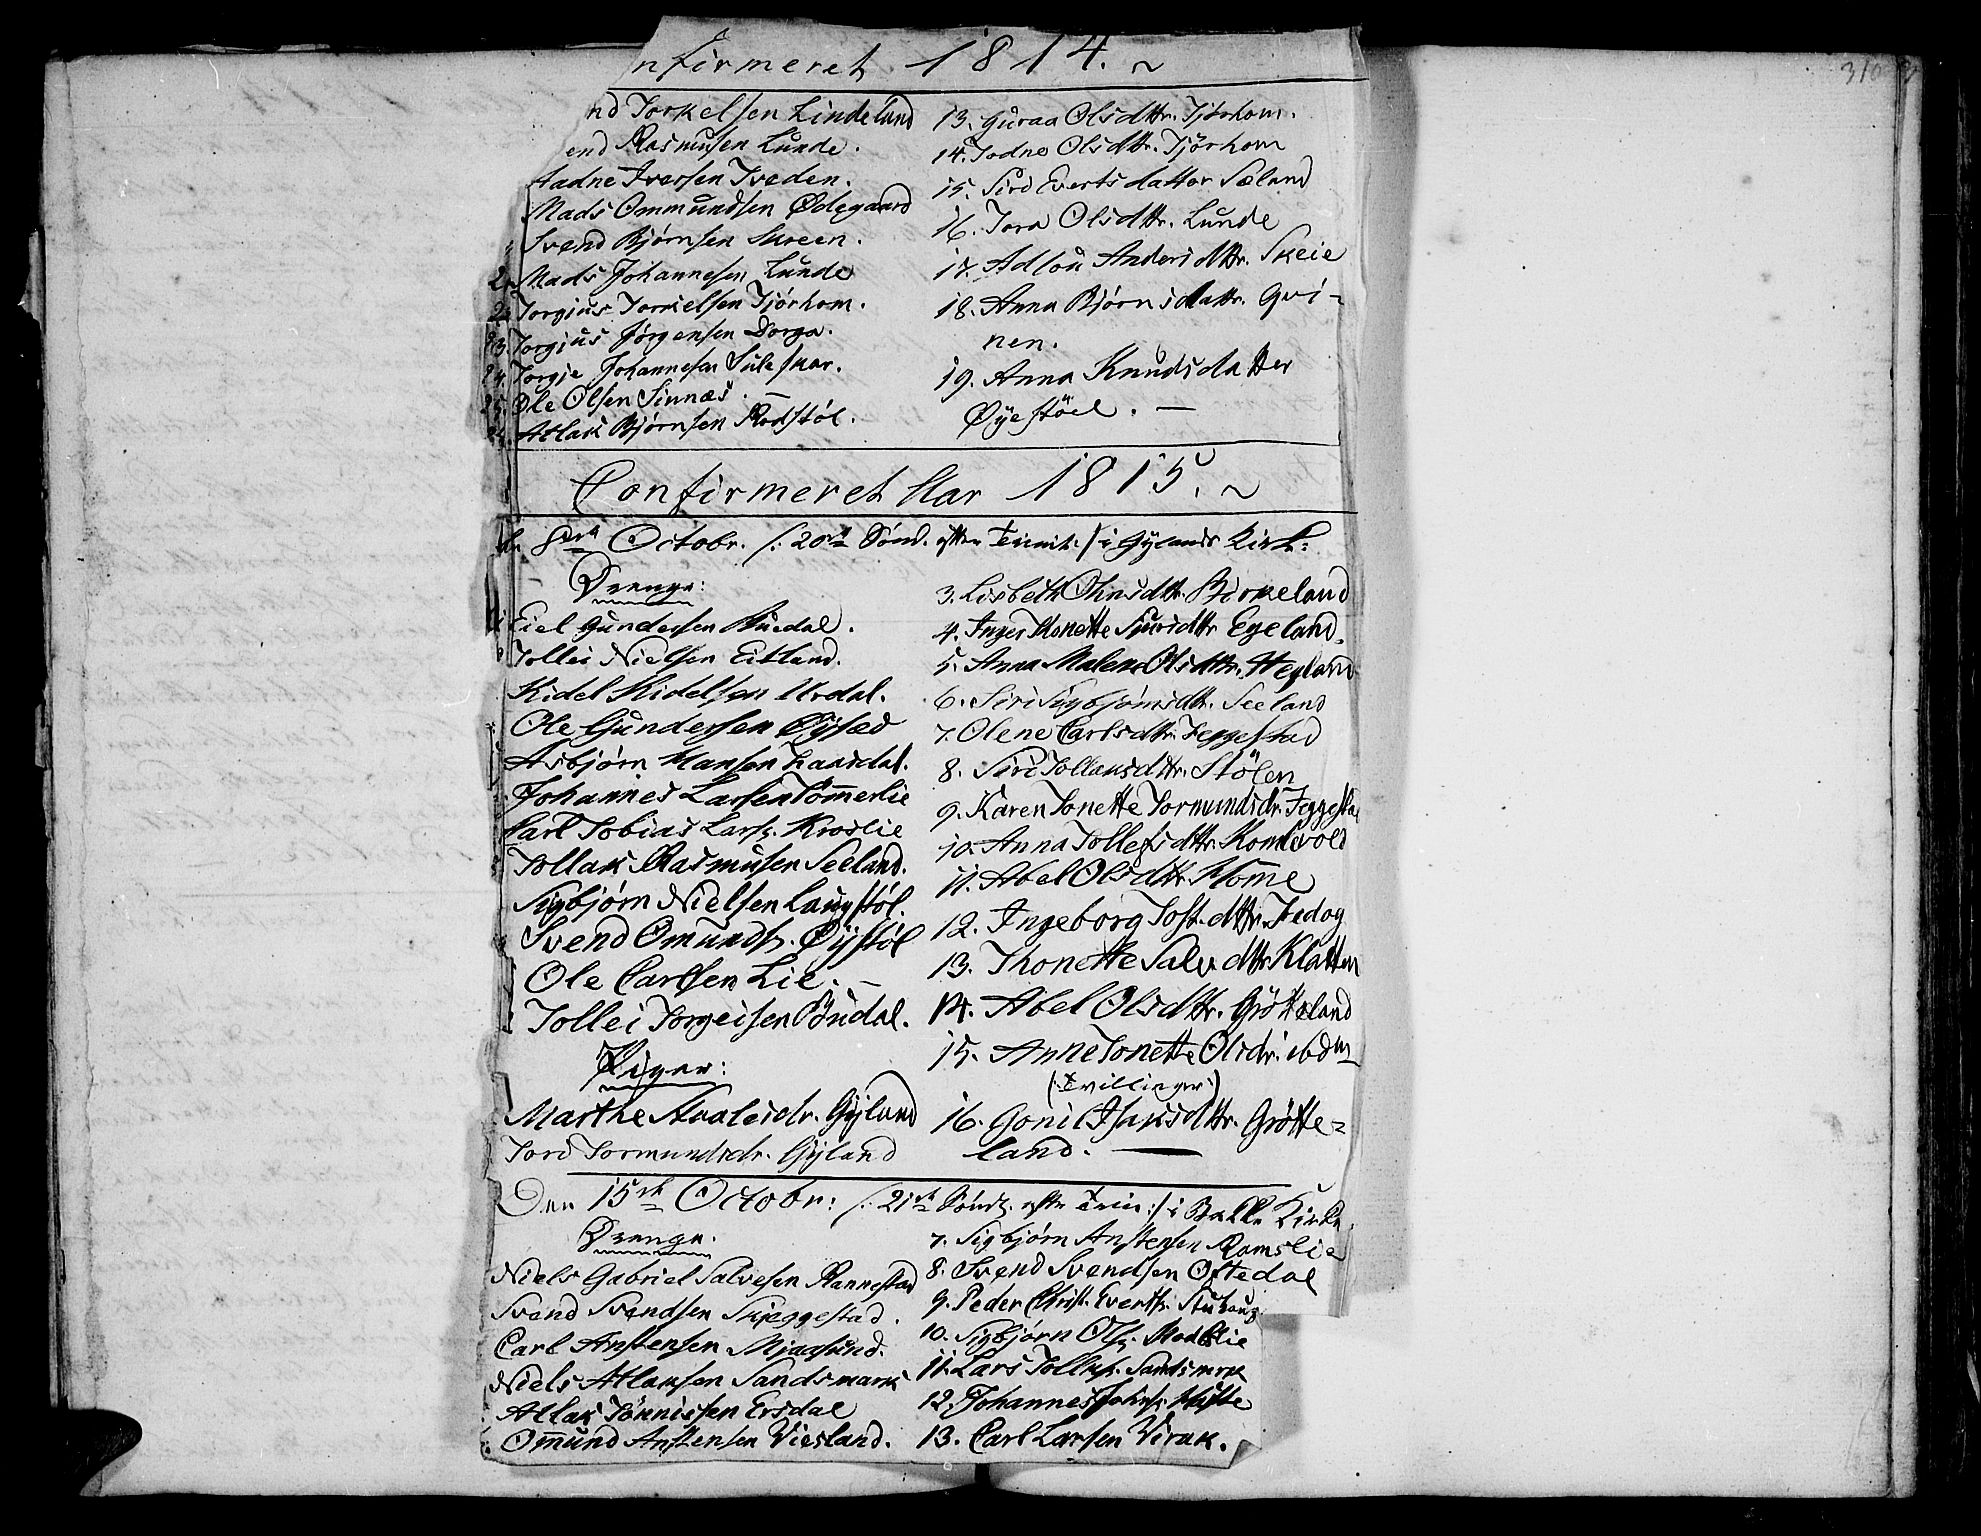 310
nfirmeret 1814.
nd Torkelsen Lindeland
end Rasmusen Lunde.
Aadne Iversen Tveden.
Mads Ommundsen Ødegaard
Svend Bjørnsen Skreen.
Mads Johannesen Lunde
Torgius Torkielsen Tjørhom.
23. Torgius Jørgensen Dorga.
24. Torgje Johannesen Suleskar.
25. Ole Olsen Sinnæs. —
Atlak Bjørnsen Rostøl.
13. Guraa Olsdttr. Tjørhom.
14. Jodne Olsdttr. Tjörhom
15. Siri Evertsdatter Sæland
16. Tora Olsdttr. Lunde
17. Adlou Andersdttr. Skeie
18. Anna Bjørnsdattr. Qvi-
nen.
19. Anna Knudsdatter
Øÿestöel. —
Confirmeret Aar 1815.
8de Octobr. /: 20de Sönd. efter Trinit. :/ i Gÿlands Kirke:
Drenge:
Eiel Gundersen Auedal.
Tollei Nielsen Eitland.
Kidel Kidelsen Urdal.
Ole Gundersen Øÿsæd
Asbjørn Hansen
Johannes Larsen Tömerlie
Carl Tobias Lars. Kroslie
Tollak Rasmusen Seeland.
Sigbjørn Nielsen Laugstøl.
Svend Omunds. Øÿstøl
Ole Carlsen Lie. —
Tollei Torgeisen
Piger:
Marthe Aralesdr. Gÿland
Tore Tormundsdr. Gÿland
3. Lisbeth Olsdttr. Birkeland
4. Inger Thonette Sjursdttr. Egeland.
5. Anna Malene Olsdttr. Hegland
6. Siri Sigbjörnsdtr. Seeland
7. Olene Carlsdttr. Jeggestad
8. Siri Tollaksdttr. Stölen
9. Karen Tonette Tormundsdr. Jeggestad
10. Anna Tollefsdttr. Kondevold
11. Abel Olsdttr. Home
12. Ingeborg Tost.dttr. Tredog
13. Thonette Salv.dttr. Klatten
14. Abel Olsdttr. Grötteland
15. Anne Tonette Olsdr. ibdm
(: Tvillinger :)
16. Goni Isaksdttr. Grötte-
land. —
Den 15de Octobr: /: 21de Sönd. efter Trin: :/ i Bakke Kirke.
Drenge.
Niels Gabriel Salvesen Rannestad
Svend Svendsen Skjeggestad.
Carl Anstensen Mjaasund.
Niels Atlaksen Sandsmark
Atlak Tönnissen Ersdal
Omund Anstensen Viesland.
7. Sigbjørn Anstensen Ramslie
8. Svend Svendsen Oftedal
9. Peder Christ. Everts. Stuhaug
10. Sigbjørn Ols. Modlie
11. Lars Tolleks. Sandsmark
12. Johannes Johns. Hufte
13. Carl Larsen Virak.